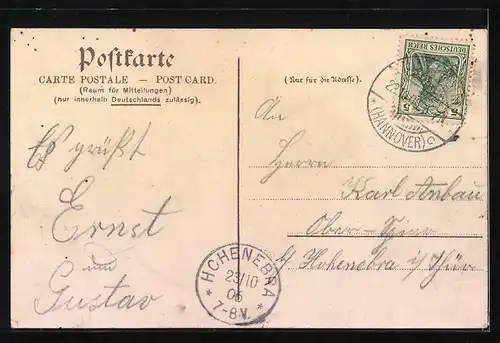 Postkarte
CARTE POSTALE — POST CARD.
(Raum für Mitteilungen)
(nur innerhalb Deutschlands zulässig).
(Nur für die Adresse).
DEUTSCHES REICH
5 5
(HANNOVER)
Es grüßt
Ernst
und
Gustav
An
Herrn
Karl Anbau
Ober-Spier
b/ Hohenebra i/Thür
* HOHENEBRA *
23/10
06
7-8V.